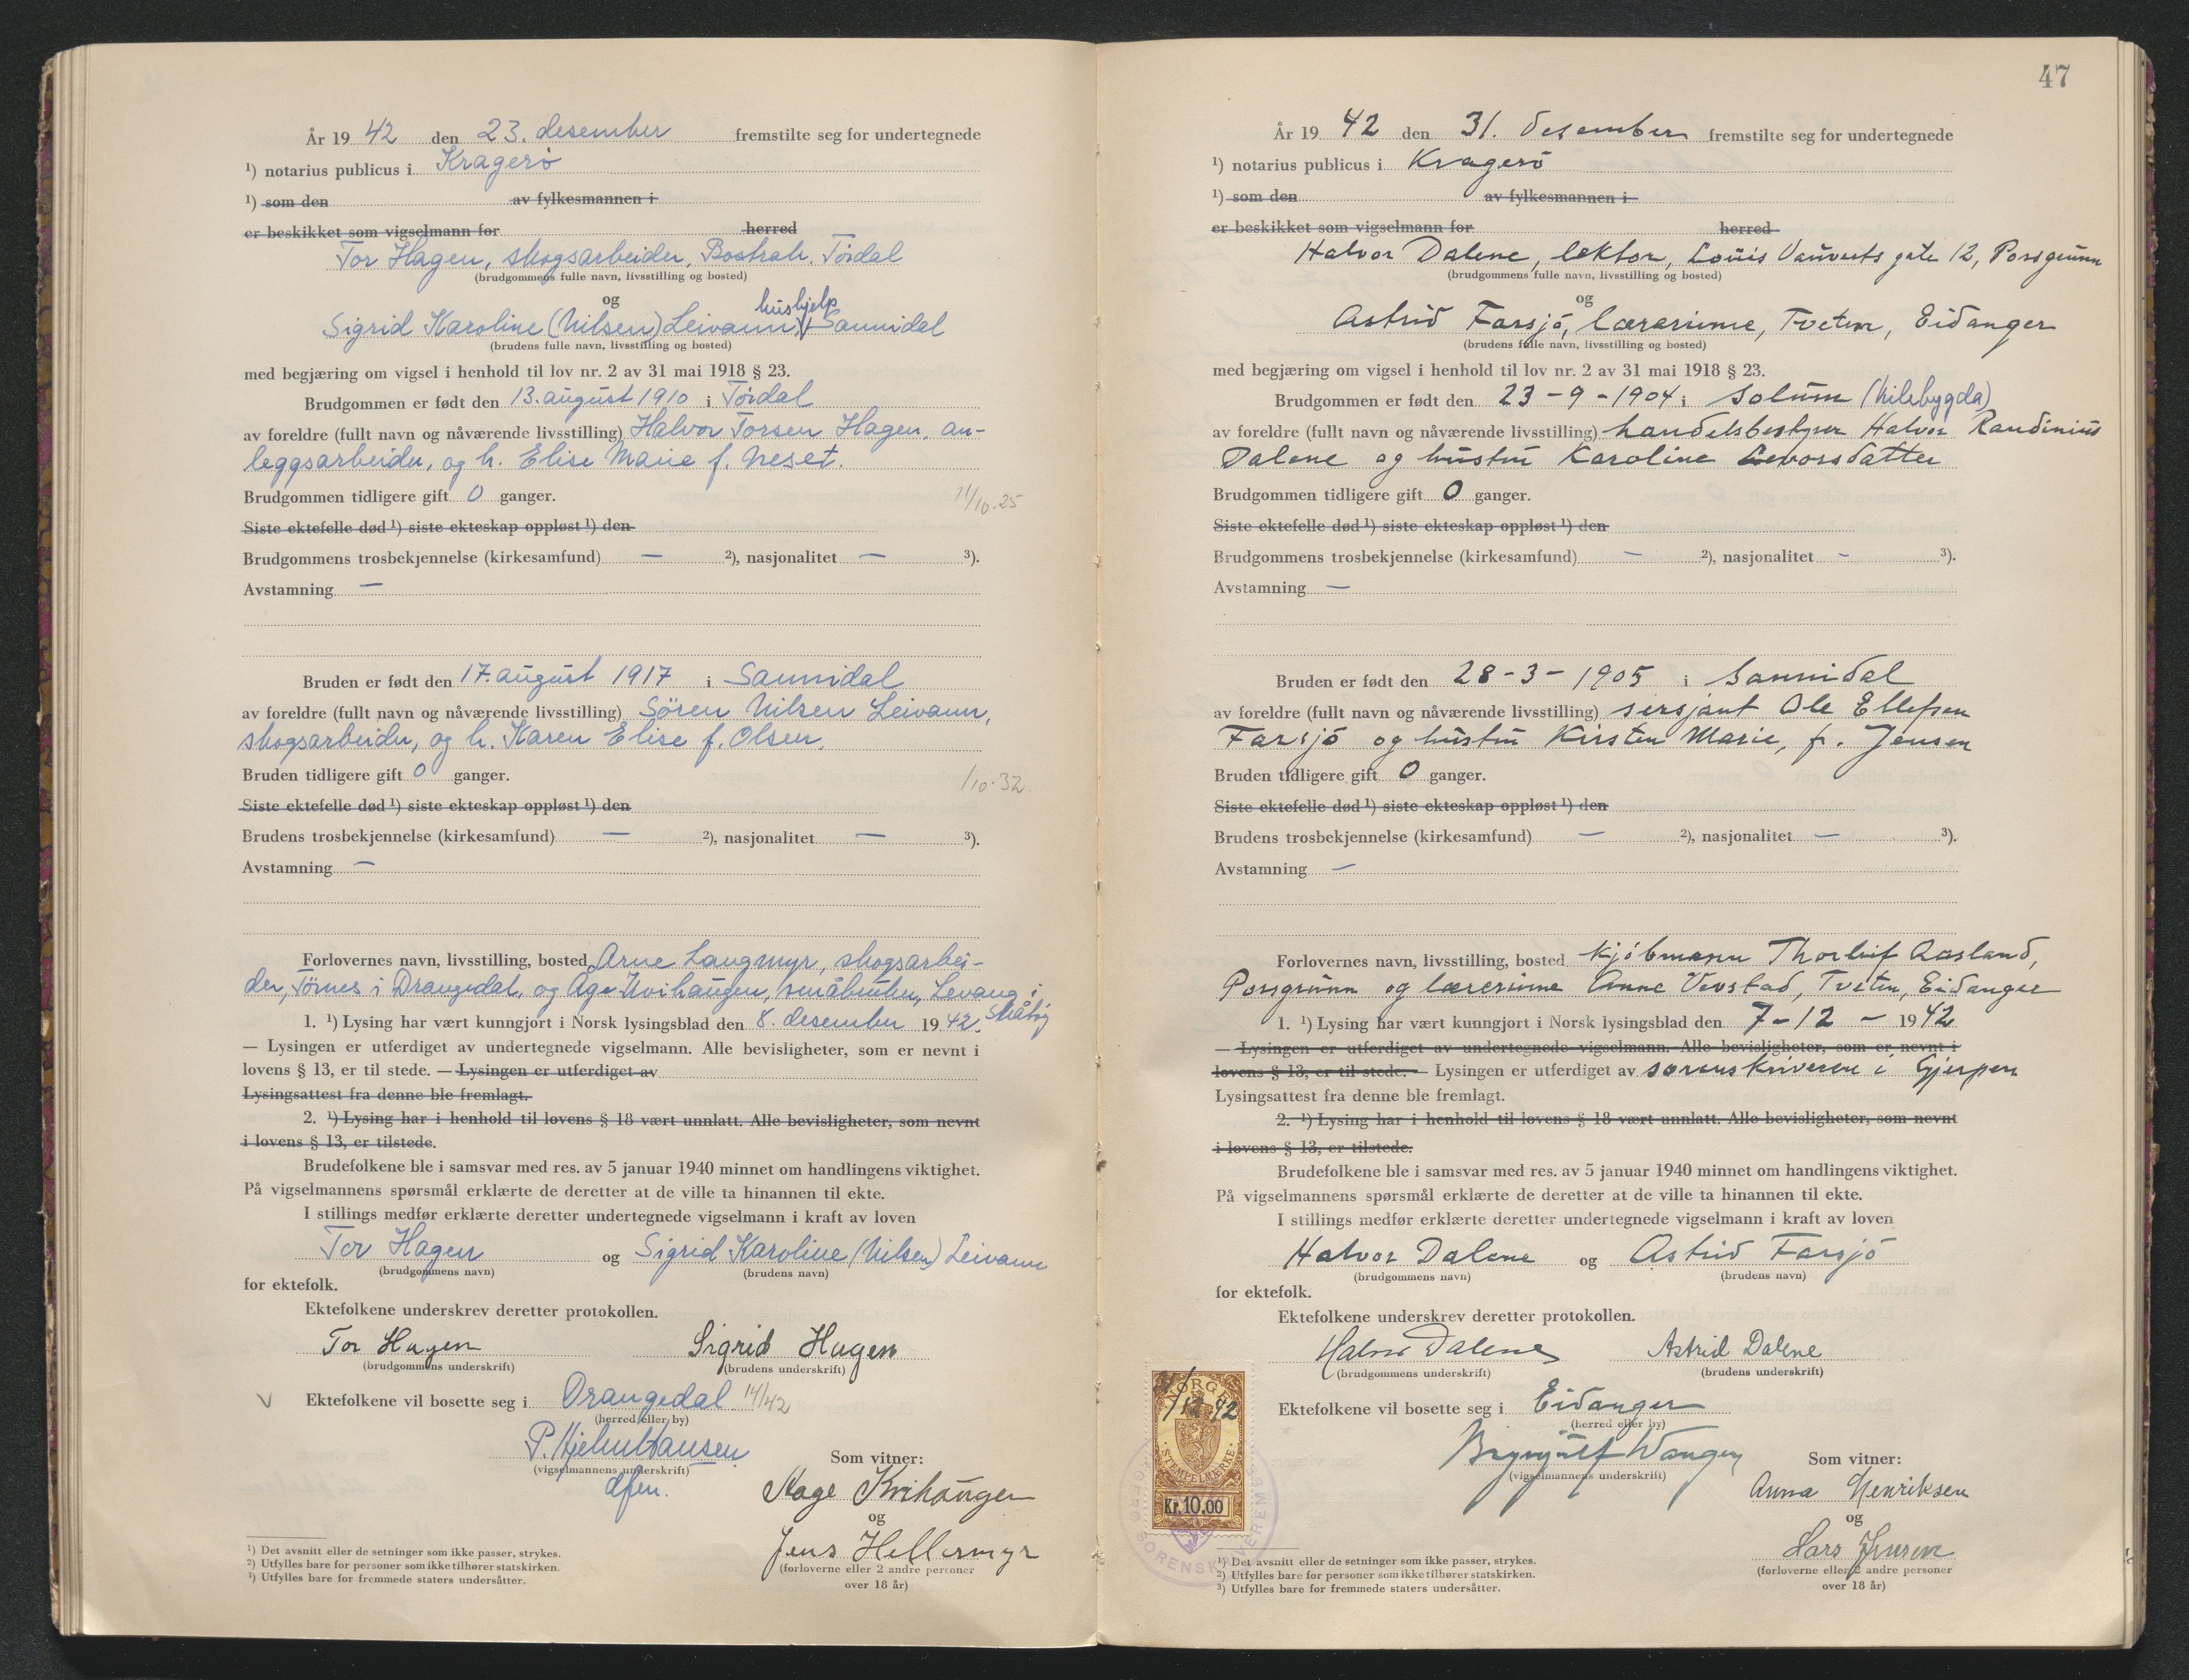 År 19 42 den 23. desember fremstilte seg for undertegnede
¹) notarius publicus i Kragerö
¹) som den av fylkesmannen i
er beskikket som vigselmann for herred
Tor Hagen, skogsarbeider, Bostrak, Tördal
(brudgommens fulle navn, livsstilling og bosted)
og
hushjelp
Sigrid Karoline (Nilsen) Leivann, Sannidal
(brudens fulle navn, livsstilling og bosted)
med begjæring om vigsel i henhold til lov nr. 2 av 31 mai 1918 § 23.
Brudgommen er født den 13. august 1910 i Tördal
av foreldre (fullt navn og nåværende livsstilling) Halvor Torsen Hagen, an-
leggsarbeider, og h. Elise Marie f. Neset.
Brudgommen tidligere gift 0 ganger.
/10.25
Siste ektefelle død ¹) siste ekteskap oppløst ¹) den
Brudgommens trosbekjennelse (kirkesamfund) — ²), nasjonalitet — ³).
Avstamning —
Bruden er født den 17. august 1917 i Sannidal
av foreldre (fullt navn og nåværende livsstilling) Sören Nilsen Leivann,
skogsarbeider, og h. Karen Elise f. Olsen.
Bruden tidligere gift 0 ganger.
/10.32.
Siste ektefelle død ¹) siste ekteskap oppløst ¹) den
Brudens trosbekjennelse (kirkesamfund) — ²), nasjonalitet — ³).
Avstamning —
Forlovernes navn, livsstilling, bosted Arne Langmyr, skogsarbei-
der, Törnes i Drangedal, og Åge Kvihaugen, småbruker, Levang i
Skåtöy
1. ¹) Lysing har vært kunngjort i Norsk lysingsblad den 8. desember 1942.
— Lysingen er utferdiget av undertegnede vigselmann. Alle bevisligheter, som er nevnt i
lovens § 13, er til stede. — Lysingen er utferdiget av
Lysingsattest fra denne ble fremlagt.
2. ¹) Lysing har i henhold til lovens § 18 vært unnlatt. Alle bevisligheter, som nevnt
i lovens § 13, er tilstede.
Brudefolkene ble i samsvar med res. av 5 januar 1940 minnet om handlingens viktighet.
På vigselmannens spørsmål erklærte de deretter at de ville ta hinannen til ekte.
I stillings medfør erklærte deretter undertegnede vigselmann i kraft av loven
Tor Hagen og Sigrid Karoline (Nilsen) Leivann
(brudgommens navn) (brudens navn)
for ektefolk.
Ektefolkene underskrev deretter protokollen.
Tor Hagen Sigrid Hagen
(brudgommens underskrift) (brudens underskrift)
Ektefolkene vil bosette seg i Drangedal 14/42
(herred eller by)
P. Hjelmhansen
(vigselmannens underskrift)
dfm.
Som vitner:
Aage Kvihaugen
og
Jens Hellermyr
(forloverne eller 2 andre personer
over 18 år)
¹) Det avsnitt eller de setninger som ikke passer, strykes.
²) Utfylles bare for personer som ikke tilhører statskirken.
³) Utfylles bare for fremmede staters undersåtter.
47
År 19 42 den 31. desember fremstilte seg for undertegnede
¹) notarius publicus i Kragerö
¹) som den av fylkesmannen i
er beskikket som vigselmann for herred
Halvor Dalene, lektor, Louis Vauverts gate 12, Porsgrunn
(brudgommens fulle navn, livsstilling og bosted)
og
Astrid Farsjö, lærerinne, Tveten, Eidanger
(brudens fulle navn, livsstilling og bosted)
med begjæring om vigsel i henhold til lov nr. 2 av 31 mai 1918 § 23.
Brudgommen er født den 23-9-1904 i Solum (Kilebygda)
av foreldre (fullt navn og nåværende livsstilling) handelsbestyrer Halvor Randinius
Dalene og hustru Karoline Gevorsdatter
Brudgommen tidligere gift 0 ganger.
Siste ektefelle død ¹) siste ekteskap oppløst ¹) den
Brudgommens trosbekjennelse (kirkesamfund) — ²), nasjonalitet — ³).
Avstamning —
Bruden er født den 28-3-1905 i Sannidal
av foreldre (fullt navn og nåværende livsstilling) sersjant Ole Ellefsen
Farsjö og hustru Kirsten Marie, f. Jensen
Bruden tidligere gift 0 ganger.
Siste ektefelle død ¹) siste ekteskap oppløst ¹) den
Brudens trosbekjennelse (kirkesamfund) — ²), nasjonalitet — ³).
Avstamning —
Forlovernes navn, livsstilling, bosted kjöbmann Thorleif Aasland,
Porsgrunn og lærerinne Anne Vevstad, Tveten, Eidanger
1. ¹) Lysing har vært kunngjort i Norsk lysingsblad den 7-12-1942
— Lysingen er utferdiget av undertegnede vigselmann. Alle bevisligheter, som er nevnt i
lovens § 13, er til stede. — Lysingen er utferdiget av sorenskriveren i Gjerpen
Lysingsattest fra denne ble fremlagt.
2. ¹) Lysing har i henhold til lovens § 18 vært unnlatt. Alle bevisligheter, som nevnt
i lovens § 13, er tilstede.
Brudefolkene ble i samsvar med res. av 5 januar 1940 minnet om handlingens viktighet.
På vigselmannens spørsmål erklærte de deretter at de ville ta hinannen til ekte.
I stillings medfør erklærte deretter undertegnede vigselmann i kraft av loven
Halvor Dalene og Astrid Farsjö
(brudgommens navn) (brudens navn)
for ektefolk.
Ektefolkene underskrev deretter protokollen.
Halvor Dalene Astrid Dalene
(brudgommens underskrift) (brudens underskrift)
Ektefolkene vil bosette seg i Eidanger
(herred eller by)
Brynjulf Wangen
(vigselmannens underskrift)
Som vitner:
Anna Henriksen
og
Lars
(forloverne eller 2 andre personer
over 18 år)
NORGE
/12 42
STEMPELMERKE
Kr. 10.00
SORENSKRIVEREMB
¹) Det avsnitt eller de setninger som ikke passer, strykes.
²) Utfylles bare for personer som ikke tilhører statskirken.
³) Utfylles bare for fremmede staters undersåtter.